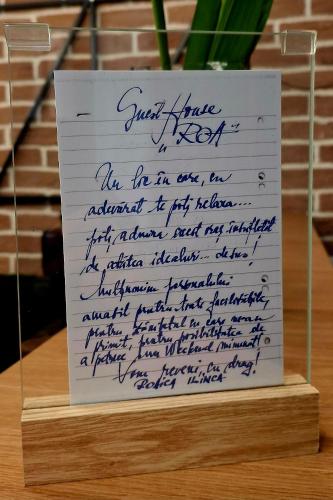 Guest House
"ROA"
Un loc în care, cu
adevărat te poți relaxa...
poți admira acest oraș însuflețit
de atâtea idealuri... desus!
Mulțumim personalului
amabil pentru toate facilitățile,
pentru în care ne-au
primit, pentru posibilitatea de
a petrece un Weekend minunat!
Vom reveni, cu drag!
RODICA ILINCA